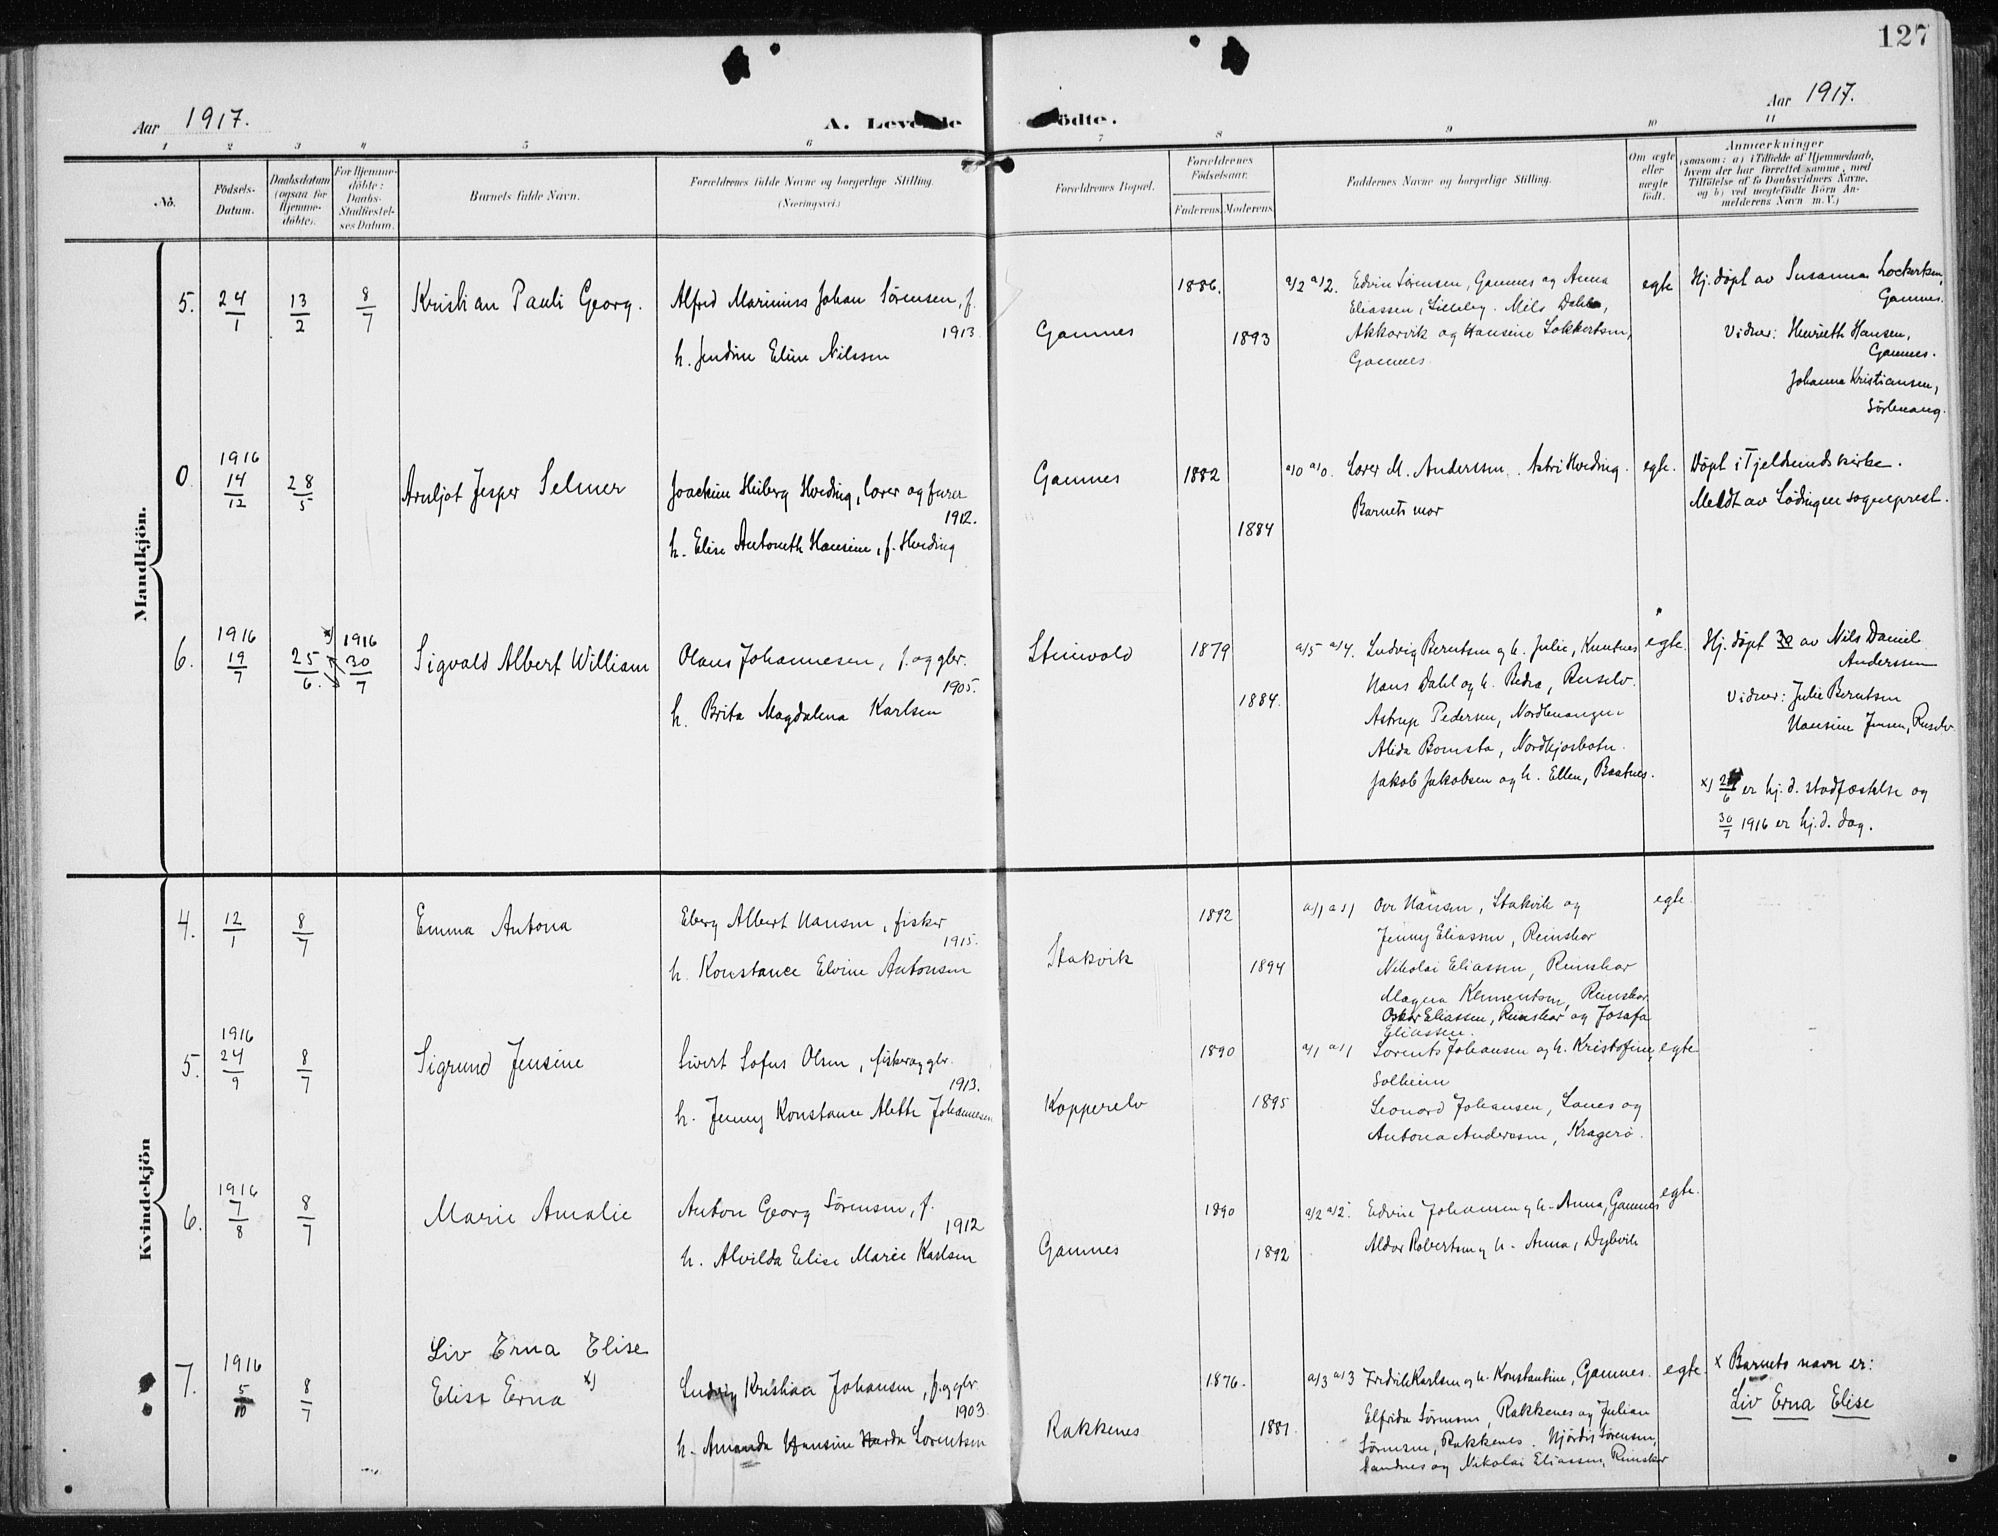 127
Aar 1917.
A. Levende Födte.
Aar 1917.
1 2 3 4 5 6 7 8 9 10 11
No.
Födsels-Datum.
Daabsdatum (ogsaa for Hjemme-döbte).
For Hjemme-döbte: Daabs-Stadfæstel-ses Datum.
Barnets fulde Navn.
Forældrenes fulde Navne og borgerlige Stilling.
(Næringsvei.)
Forældrenes Bopæl.
Forældrenes Födselsaar.
Faderens. Moderens.
Faddernes Navne og borgerlige Stilling.
Om ægte eller uægte födt.
Anmærkninger
(saasom: a) i Tilfælde af Hjemmedaab, hvem der har forrettet samme, med Tilföielse af to Daabsvidners Navne, og b) ved uægtefödte Börn An-melderens Navn m. V.)
Mandkjön.
5. 24/1 13/2 8/7 Kristian Pauli Georg. Alfred Marinius Johan Sørensen, f.
1913
h. Jendine Eline Nilssen
Gamnes 1886. 1893
a/2 a/2. Edvin Sørensen, Gamnes og Anna
Eliassen, Lilleby. Nils Dahl,
Akkarvik og Hansine Lokkertsen,
Gamnes.
egte
Hj. døpt av Susanna Lockertsen,
Gamnes.
Vidner: Henrieth Hansen,
Gamnes.
Johanna Kristiansen,
Sørlenang.
0 1916 14/12 28/5 Arnljot Jesper Selmer Joachim Heiberg Hveding, lærer og furer
1912.
h. Elise Antoneth Hansine, f. Hveding
Gamnes 1882 1884
a/0 a/0. Lærer M. Anderssen. Astri Hveding.
Barnets mor
egte.
Døpt i Tjeldsunds kirke.
Meldt av Lødingen sogneprest.
6. 1916 19/7 25/6. x) 1916 30/7 Sigvald Albert William Olaus Johannesen, f. og gbr.
1905.
h. Brita Magdalena Karlsen
Steinvold 1879 1884.
a/5 a/4. Ludvig Berntsen og h. Julie,
Hans Dahl og h. Pedra, Reiselv.
Astrup Pedersen, Nordlenangen
Alida Bomsta, Nordkjosbotn.
Jakob Jakobsen og h. Ellen, Baatnes.
egte.
Hj. døpt 30 av Nils Daniel
Anderssen
Vidner: Julie Berntsen
Hansine Jensen,
x) 25/6 er hj. d. stadfæstelse og
30/7 1916 er hj. d. dag.
Kvindekjön
4. 12/1 8/7 Emma Antona Eberg Albert Hansen, fisker
1915.
h. Konstance Elvine Antonsen
Stakvik 1892 1894
a/1 a/1 Ove Hansen, Stakvik og
Jenny Eliassen, Reinskar
Nikolai Eliassen, Reinskar
Magna Klementsen, Reinskar
Oskar Eliassen, Reinskar og Josafa
Eliassen.
egte.
5. 1916 24/9 8/7 Sigrund Jensine Sivert Sofus Olsen, fisker og gbr.
1913.
h. Jenny Konstance Aleth Johannesen
Kopperelv 1890 1895
a/1 a/1 Lorents Johansen og h. Kristofine,
Solheim
Leonard Johansen, Lanes og
Antona Anderssen, Kragerø.
egte
6. 1916 7/8 8/7 Marie Amalie Anton Georg Sørensen, f.
1912
h. Alvilda Elise Marie Karlsen
Gamnes 1890 1892
a/2 a/2. Edvin Johansen og h. Anna, Gamnes
Aldor Robertsen og h. Anna, Dybvik
egte.
7. 1916 5/10 8/7 Liv Erna Elise
Elise Erna x)
Ludvig Kristian Johansen, f. og gbr.
1903.
h. Amanda Hansine Harda Lorentsen
Rakkenes 1876. 1881.
a/3 a/3 Fridrik Karlsen og h. Konstantine, Gamnes.
Elfrida Sørensen, Rakkenes og Julian
Sørensen, Rakkenes. Hjørdis Sørensen,
Sandnes og Nikolai Eliassen, Reinskar
egte.
x Barnets navn er:
Liv Erna Elise